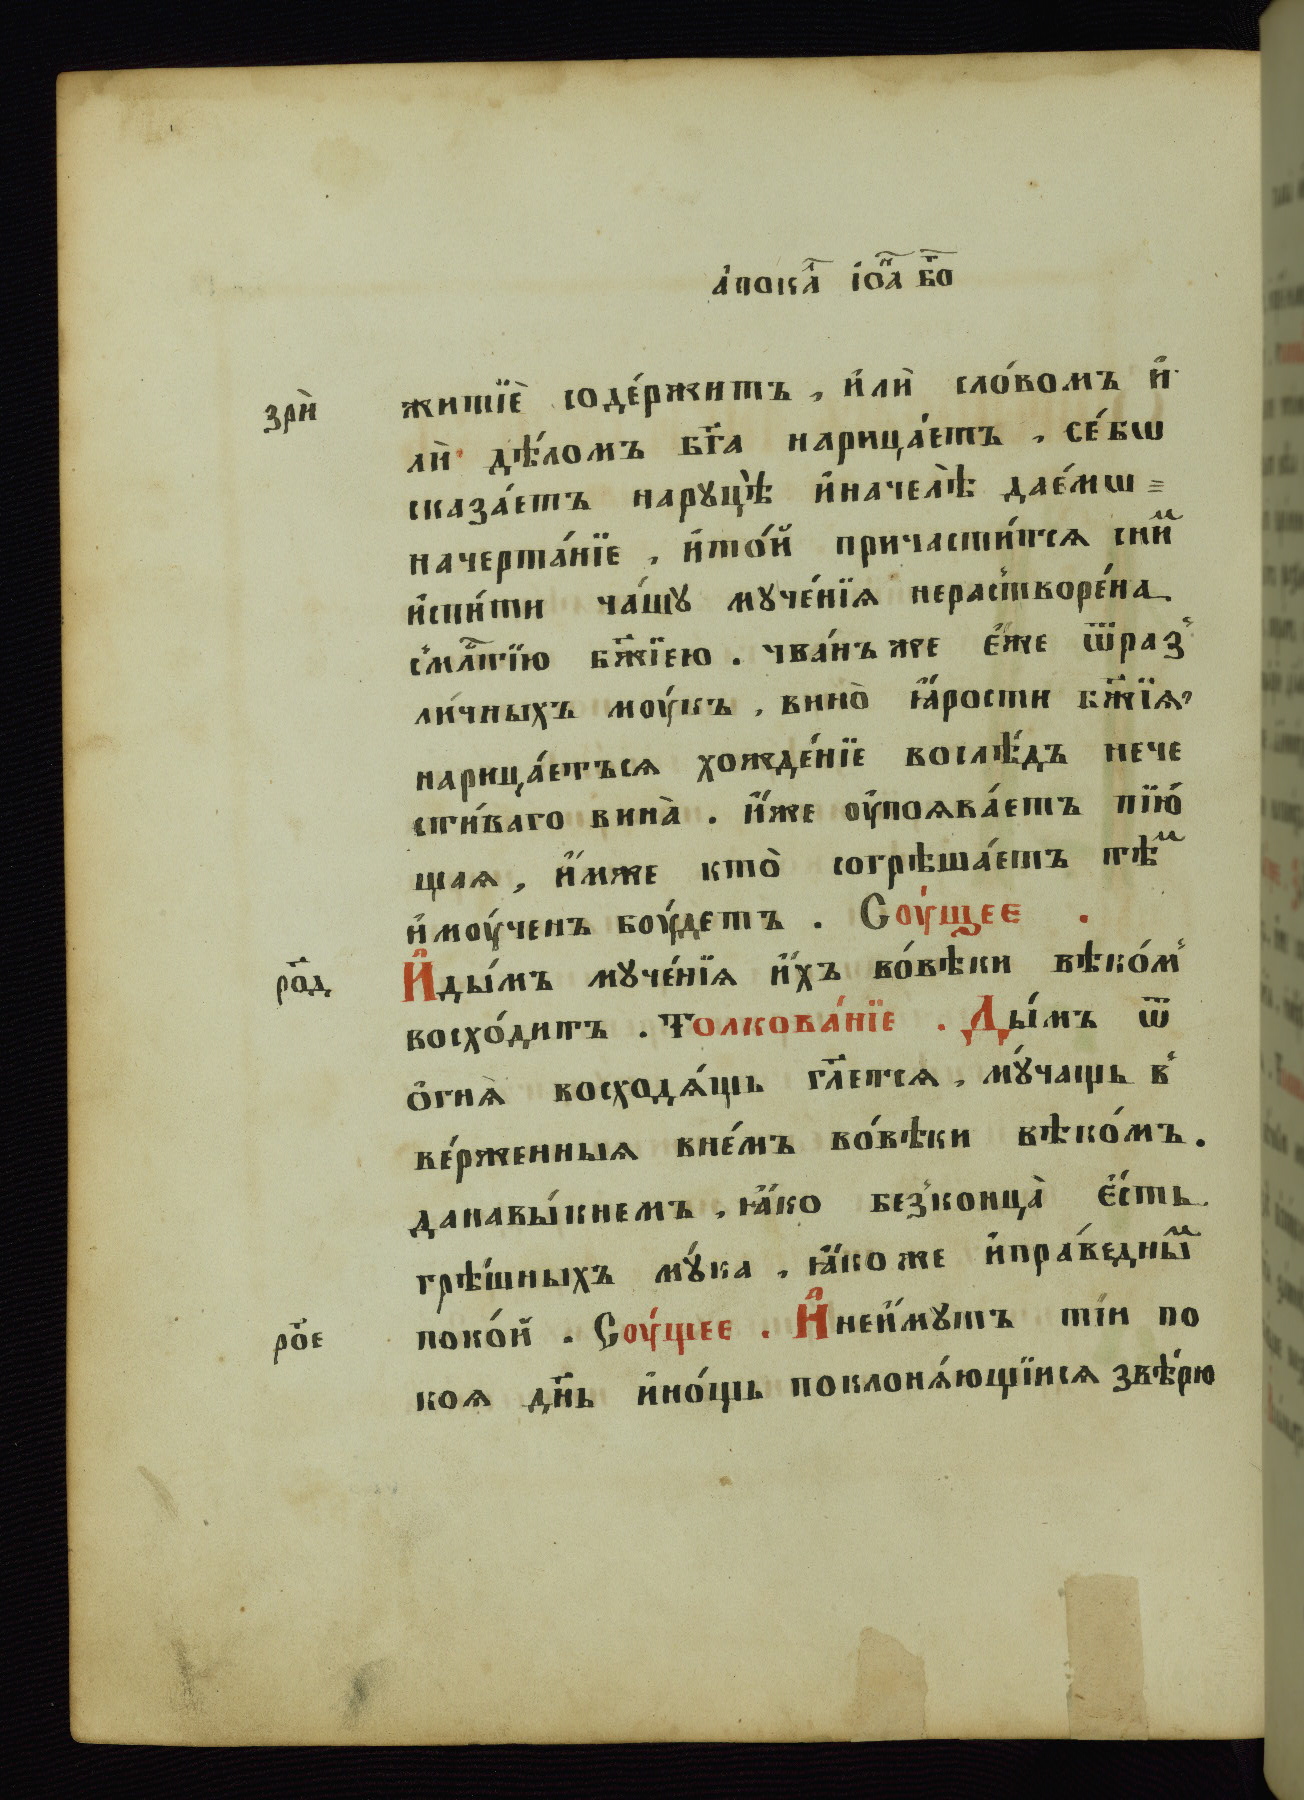 а҆пока́л і҆ѡ҃а бг҃о
зрѝ
житїѐ соде́ржитъ , и҆лѝ сло́вомъ и҆
лѝ дѣ́ломъ бг҃а нарица́етъ . се́бѡ
сказа́етъ наруцѣ̀ и҆начелѣ̀ дае́мѡ =
начерта́нїе , и҆то́й причасти́тся сни́м
и҆спи́ти ча́шу муче́нїя нераство́рена
с̾млⷭ҇тїю бж҃їею . чва́нъ же є҆́же ѿраз̾
ли́чныхъ моу́къ , вино̀ ꙗ҆́рости бж҃їѧ ,
нарица́етъсѧ хожде́нїе вослѣ́дъ нече
сти́ваго вина̀ . и҆́же оу҆поява́етъ пїю́
щаѧ , и҆́мже кто̀ согрѣша́етъ тѣⷨ
и҆моу́ченъ боу́детъ . Соу́щее .
род
И҆ды́мъ муче́нїѧ и҆́хъ во́вѣки вѣко́м̾
восхо́дитъ . Толкова́нїе . Ды́мъ ѿ
о҆гнѧ̀ восходѧ́щь гл҃етсѧ , му́чащь в̾
ве́рженныѧ вне́мъ во́вѣки вѣко́мъ .
данавы́кнемъ , ꙗ҆́ко без̾конца̀ є҆́сть
грѣ́шныхъ му́ка , ꙗ҆́коже и҆пра́ведныⷨ
рое
поко́й . Соу́щее . И҆неи҆́мутъ ті́и по
коѧ дн҃ь и҆но́щь поклонѧ́ющїисѧ звѣ́рю